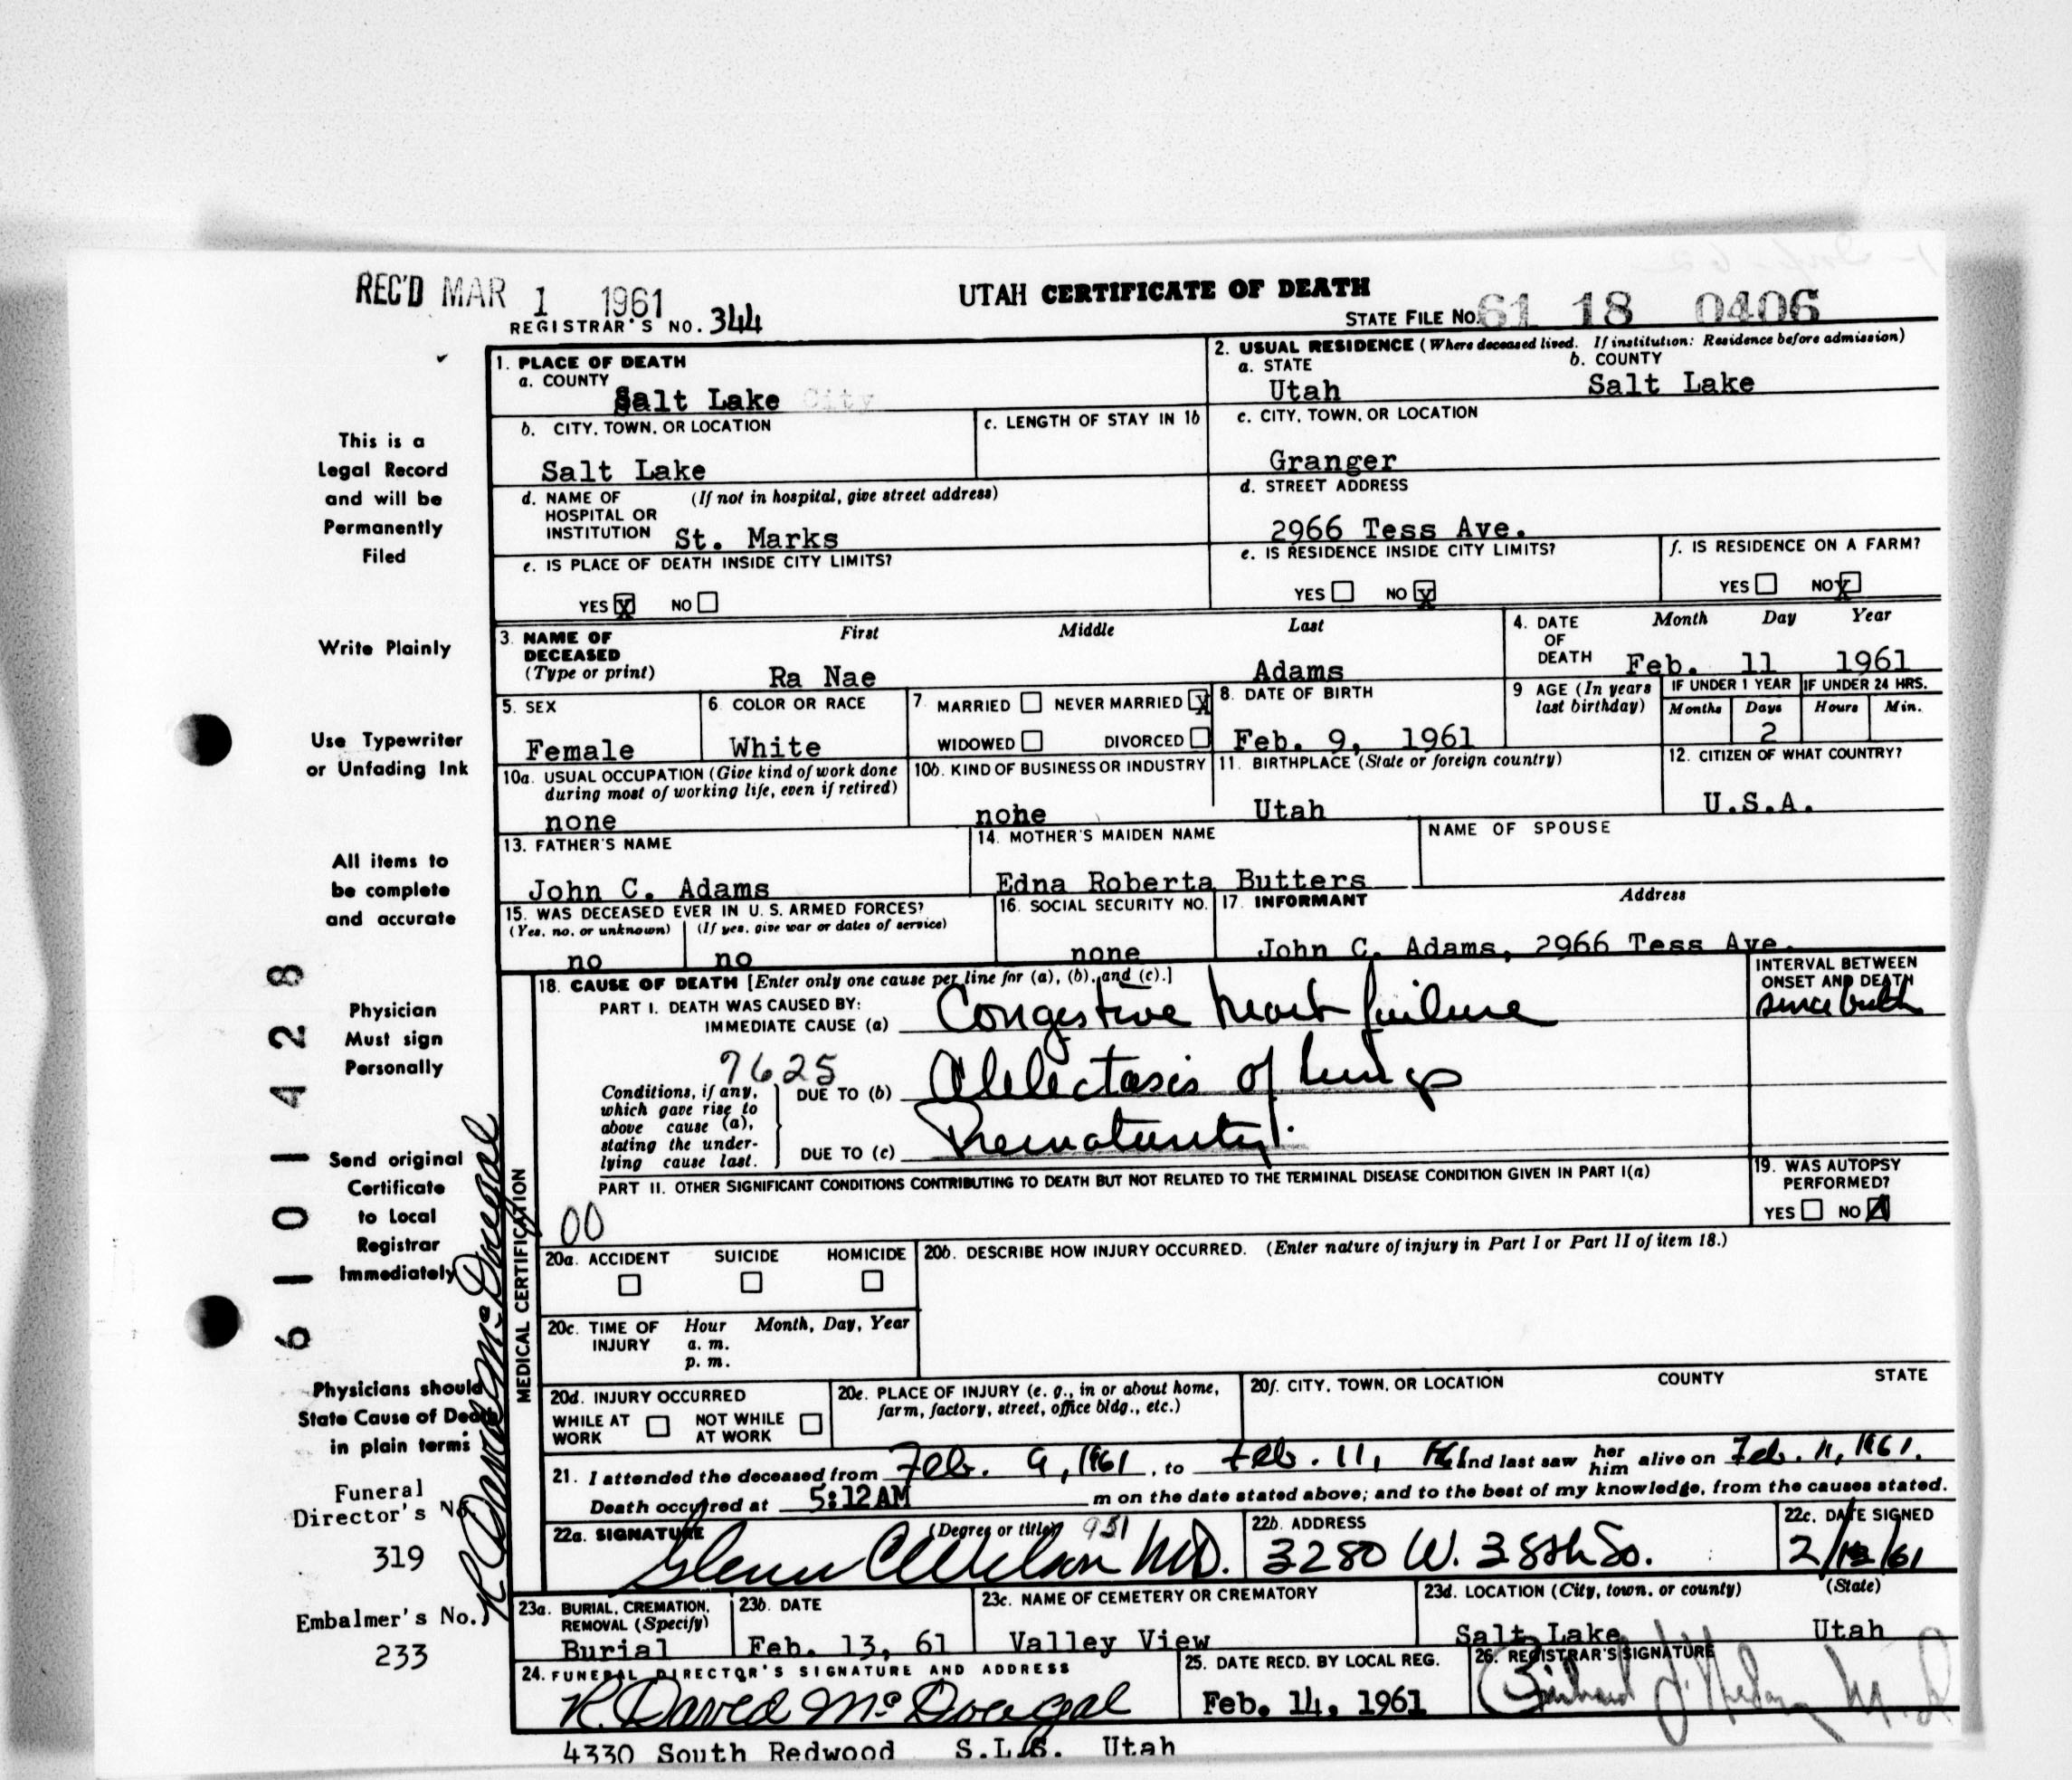 REC'D MAR 1 1961
UTAH CERTIFICATE OF DEATH
REGISTRAR'S NO. 344
STATE FILE NO. 61 18 0406
1. PLACE OF DEATH
a. COUNTY
Salt Lake City
2. USUAL RESIDENCE (Where deceased lived. If institution: Residence before admission)
a. STATE
Utah
b. COUNTY
Salt Lake
b. CITY, TOWN, OR LOCATION
Salt Lake
c. LENGTH OF STAY IN 1b
c. CITY, TOWN, OR LOCATION
Granger
d. NAME OF HOSPITAL OR INSTITUTION (If not in hospital, give street address)
St. Marks
d. STREET ADDRESS
2966 Tess Ave.
e. IS PLACE OF DEATH INSIDE CITY LIMITS?
YES X NO
e. IS RESIDENCE INSIDE CITY LIMITS?
YES NO X
f. IS RESIDENCE ON A FARM?
YES NO X
3. NAME OF DECEASED (Type or print)
First Middle Last
Ra Nae Adams
4. DATE OF DEATH
Month Day Year
Feb. 11 1961
5. SEX
Female
6. COLOR OR RACE
White
7. MARRIED NEVER MARRIED X
WIDOWED DIVORCED
8. DATE OF BIRTH
Feb. 9, 1961
9 AGE (In years last birthday)
IF UNDER 1 YEAR
Months Days
2
IF UNDER 24 HRS.
Hours Min.
10a. USUAL OCCUPATION (Give kind of work done during most of working life, even if retired)
none
10b. KIND OF BUSINESS OR INDUSTRY
nohe
11. BIRTHPLACE (State or foreign country)
Utah
12. CITIZEN OF WHAT COUNTRY?
U.S.A.
13. FATHER'S NAME
John C. Adams
14. MOTHER'S MAIDEN NAME
Edna Roberta Butters
NAME OF SPOUSE
15. WAS DECEASED EVER IN U. S. ARMED FORCES?
(Yes, no, or unknown) (If yes, give war or dates of service)
no no
16. SOCIAL SECURITY NO.
none
17. INFORMANT Address
John C. Adams, 2966 Tess Ave.
MEDICAL CERTIFICATION
18. CAUSE OF DEATH [Enter only one cause per line for (a), (b), and (c).]
PART I. DEATH WAS CAUSED BY:
IMMEDIATE CAUSE (a) Congestive heart failure
INTERVAL BETWEEN ONSET AND DEATH
since birth
7625
Conditions, if any, which gave rise to above cause (a), stating the underlying cause last.
DUE TO (b) Atelectasis of lungs
DUE TO (c) Prematurity.
PART II. OTHER SIGNIFICANT CONDITIONS CONTRIBUTING TO DEATH BUT NOT RELATED TO THE TERMINAL DISEASE CONDITION GIVEN IN PART I(a)
00
19. WAS AUTOPSY PERFORMED?
YES NO X
20a. ACCIDENT SUICIDE HOMICIDE
20b. DESCRIBE HOW INJURY OCCURRED. (Enter nature of injury in Part I or Part II of item 18.)
20c. TIME OF INJURY Hour Month, Day, Year
a. m.
p. m.
20d. INJURY OCCURRED
WHILE AT WORK NOT WHILE AT WORK
20e. PLACE OF INJURY (e. g., in or about home, farm, factory, street, office bldg., etc.)
20f. CITY, TOWN, OR LOCATION COUNTY STATE
21. I attended the deceased from Feb. 9, 1961, to Feb. 11, 61 and last saw her him alive on Feb. 11, 1961.
Death occurred at 5:12 AM m on the date stated above; and to the best of my knowledge, from the causes stated.
22a. SIGNATURE (Degree or title) 951
Glenn C Wilson M.D.
22b. ADDRESS
3280 W. 38th So.
22c. DATE SIGNED
2/12/61
23a. BURIAL, CREMATION, REMOVAL (Specify)
Burial
23b. DATE
Feb. 13, 61
23c. NAME OF CEMETERY OR CREMATORY
Valley View
23d. LOCATION (City, town, or county) (State)
Salt Lake Utah
24. FUNERAL DIRECTOR'S SIGNATURE AND ADDRESS
R. David McDougal
4330 South Redwood S.L.C. Utah
25. DATE RECD. BY LOCAL REG.
Feb. 14, 1961
26. REGISTRAR'S SIGNATURE
This is a
Legal Record
and will be
Permanently
Filed
Write Plainly
Use Typewriter
or Unfading Ink
All items to
be complete
and accurate
Physician
Must sign
Personally
Send original
Certificate
to Local
Registrar
Immediately
Physicians should
State Cause of Death
in plain terms
Funeral
Director's No.
319
Embalmer's No.
233
R David McDougal
6 10 1428